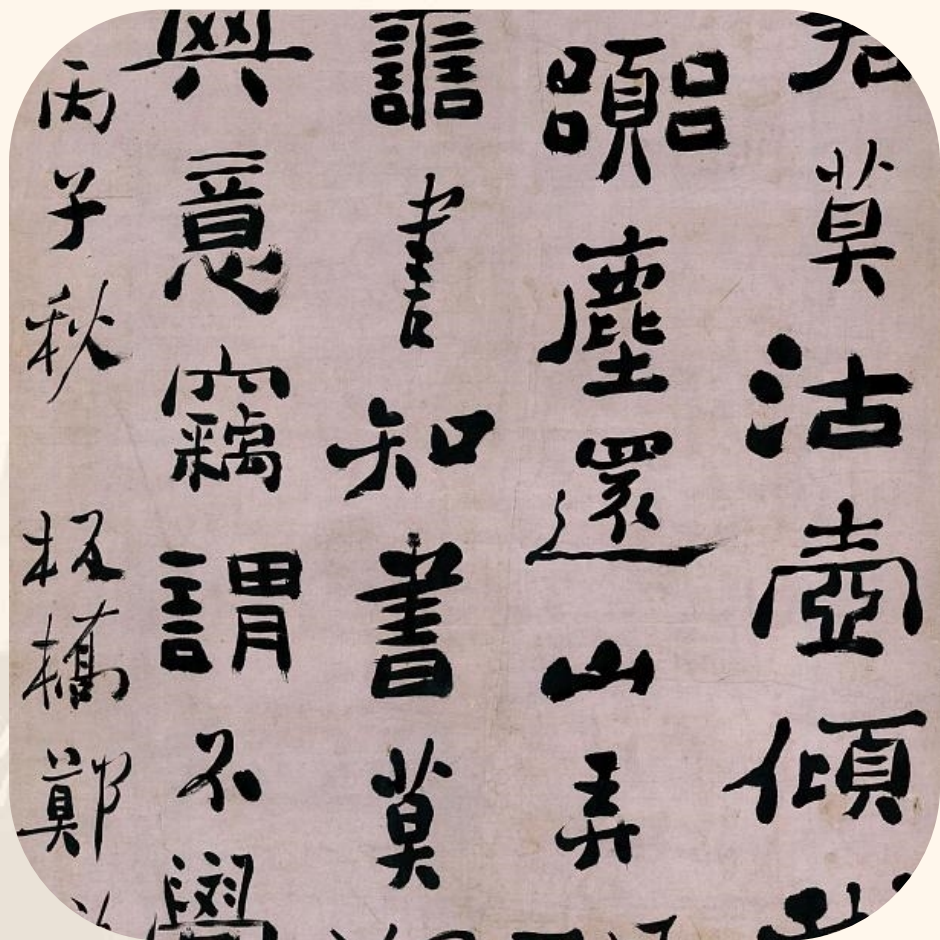 若莫沽壺傾
嚻塵還山弄
誰書知書莫
興意竊謂不學
丙子秋 板橋鄭